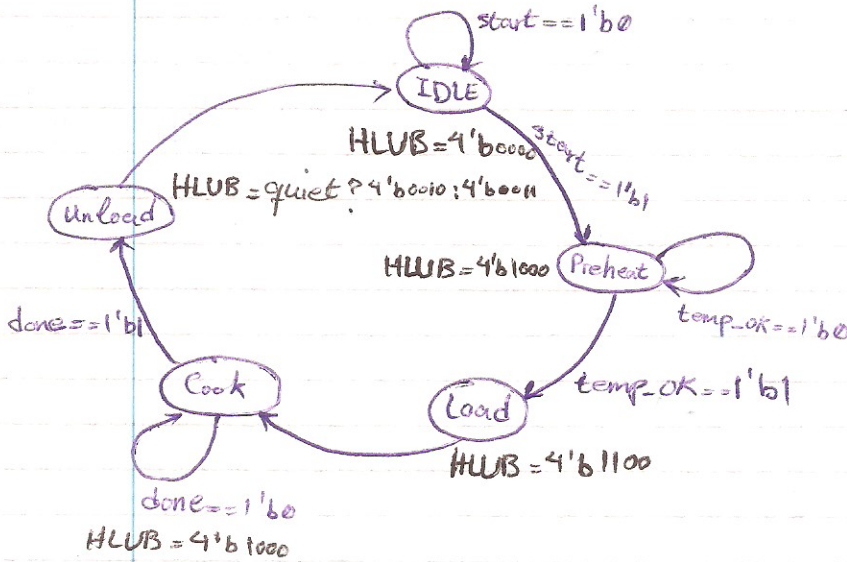 start==1'b0
IDLE
HLUB=4'b0000
start==1'b1
HLUB=quiet?4'b0010:4'b0011
Unload
HLUB=4'b1000
Preheat
temp_ok==1'b0
done==1'b1
Cook
temp_ok==1'b1
Load
HLUB=4'b1100
done==1'b0
HLUB=4'b1000